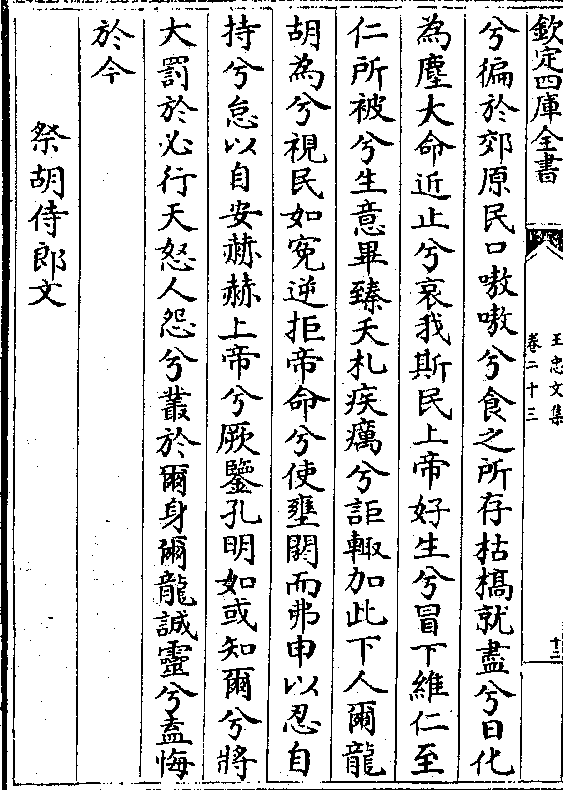 欽定四庫全書
王忠文集
卷二十三
十二
兮徧於郊原民口嗷嗷兮食之所存枯槁就盡兮日化
為塵大命近止兮哀我斯民上帝好生兮冒下維仁至
仁所被兮生意畢臻夭札疾癘兮詎輙加此下人爾龍
胡為兮視民如寃逆拒帝命兮使壅閼而弗申以忍自
持兮怠以自安赫赫上帝兮厥鑒孔明如或知爾兮將
大罰於必行天怒人怨兮叢於爾身爾龍誠靈兮盍悔
於今
祭胡侍郎文